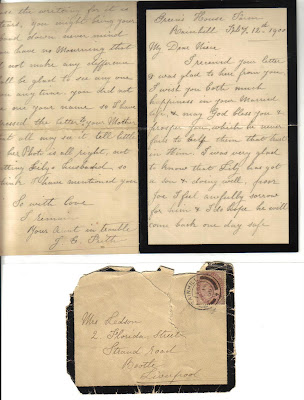 Green's House Farm
Bramhill Feby. 12th 1900
My Dear Niece
I received you letter
& was glad to hear from you
I wish you both much
happiness in your Married
life & may God bless you &
prosper you, which he never
fails to help them that trust
in him. I was very glad
to know that Lily has got
a son & doing well. poor
Joe I feel awfully sorrow
for him & I do hope he will
come back one day safe
the writing for it is
you might bring your
and Town never mind
have no Mourning that
not make any difference
ll be glad to see any one
any time. you did not
me your name so I have
ressed the letter to your Mother
at all may so it tell little
her Photo is all right, not
Lily's husband, so
I have mentioned you
So with love
I remain
Your Aunt in trouble
J. C. Frith
Mrs Ledson
2 Florida Street
Strand Road
Bootle
Liverpool